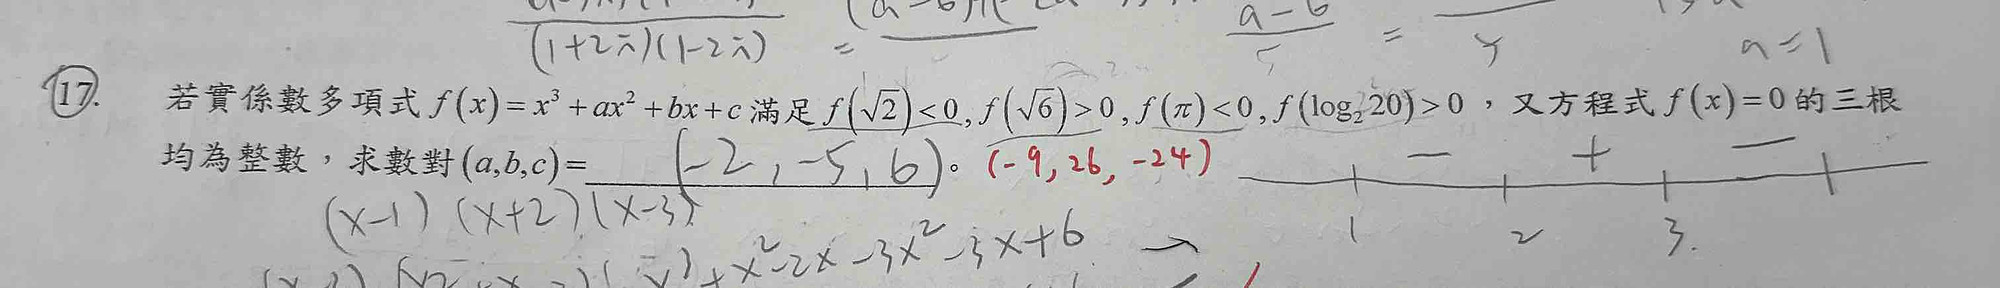 (1+2i)(1-2i) = a-b/5 = a=1
17. 若實係數多項式 f(x)=x³+ax²+bx+c 滿足 f(√2)<0, f(√6)>0, f(π)<0, f(log₂20)>0，又方程式 f(x)=0 的三根
均為整數，求數對(a,b,c)= (-2,-5,6)。 (-9,26,-24) − + −
(x-1)(x+2)(x-3) 1 2 3.
+x²-2x-3x²-3x+6 →